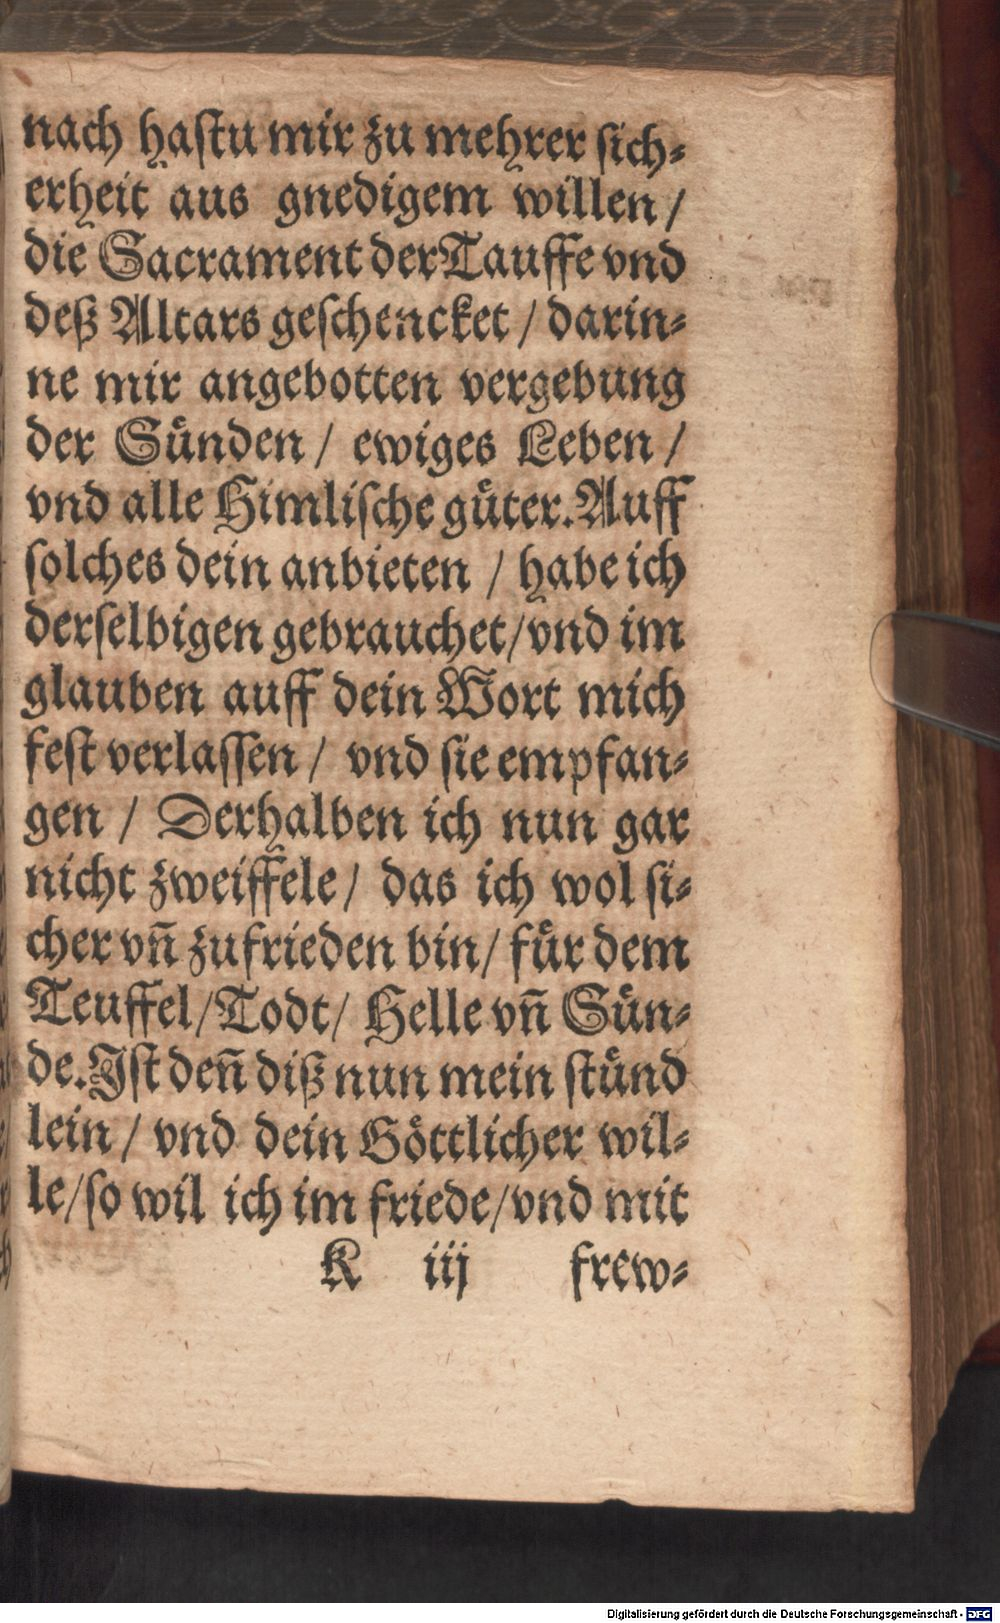 nach hastu mir zu mehrer sich⸗
erheit aus gnedigem willen /
die Sacrament der Tauffe vnd
deß Altars geschencket / darin⸗
ne mir angebotten vergebung
der Sünden / ewiges Leben /
vnd alle Himlische güter. Auff
solches dein anbieten / habe ich
derselbigen gebrauchet / vnd im
glauben auff dein Wort mich
fest verlassen / vnd sie empfan⸗
gen / Derhalben ich nun gar
nicht zweiffele / das ich wol si⸗
cher vñ zufrieden bin / für dem
Teuffel / Todt / Helle vñ Sün⸗
de. Ist deñ diß nun mein stünd
lein / vnd dein Göttlicher wil⸗
le / so wil ich im friede / vnd mit
K iij frew⸗
Digitalisierung gefördert durch die Deutsche Forschungsgemeinschaft - DFG